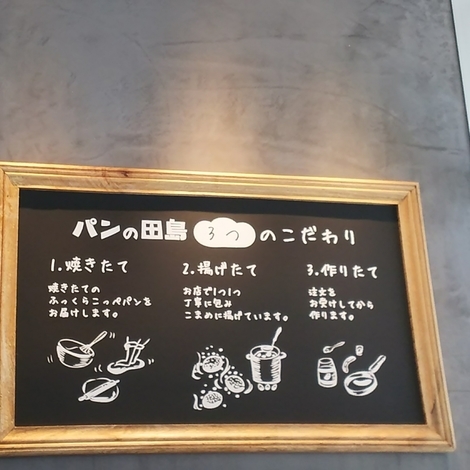 パンの田島 3つ のこだわり
1.焼きたて
焼きたての
ふっくらこっぺパンを
お届けします。
2.揚げたて
お店で1つ1つ
丁寧に包み
こまめに揚げています。
3.作りたて
注文を
お受けしてから
作ります。